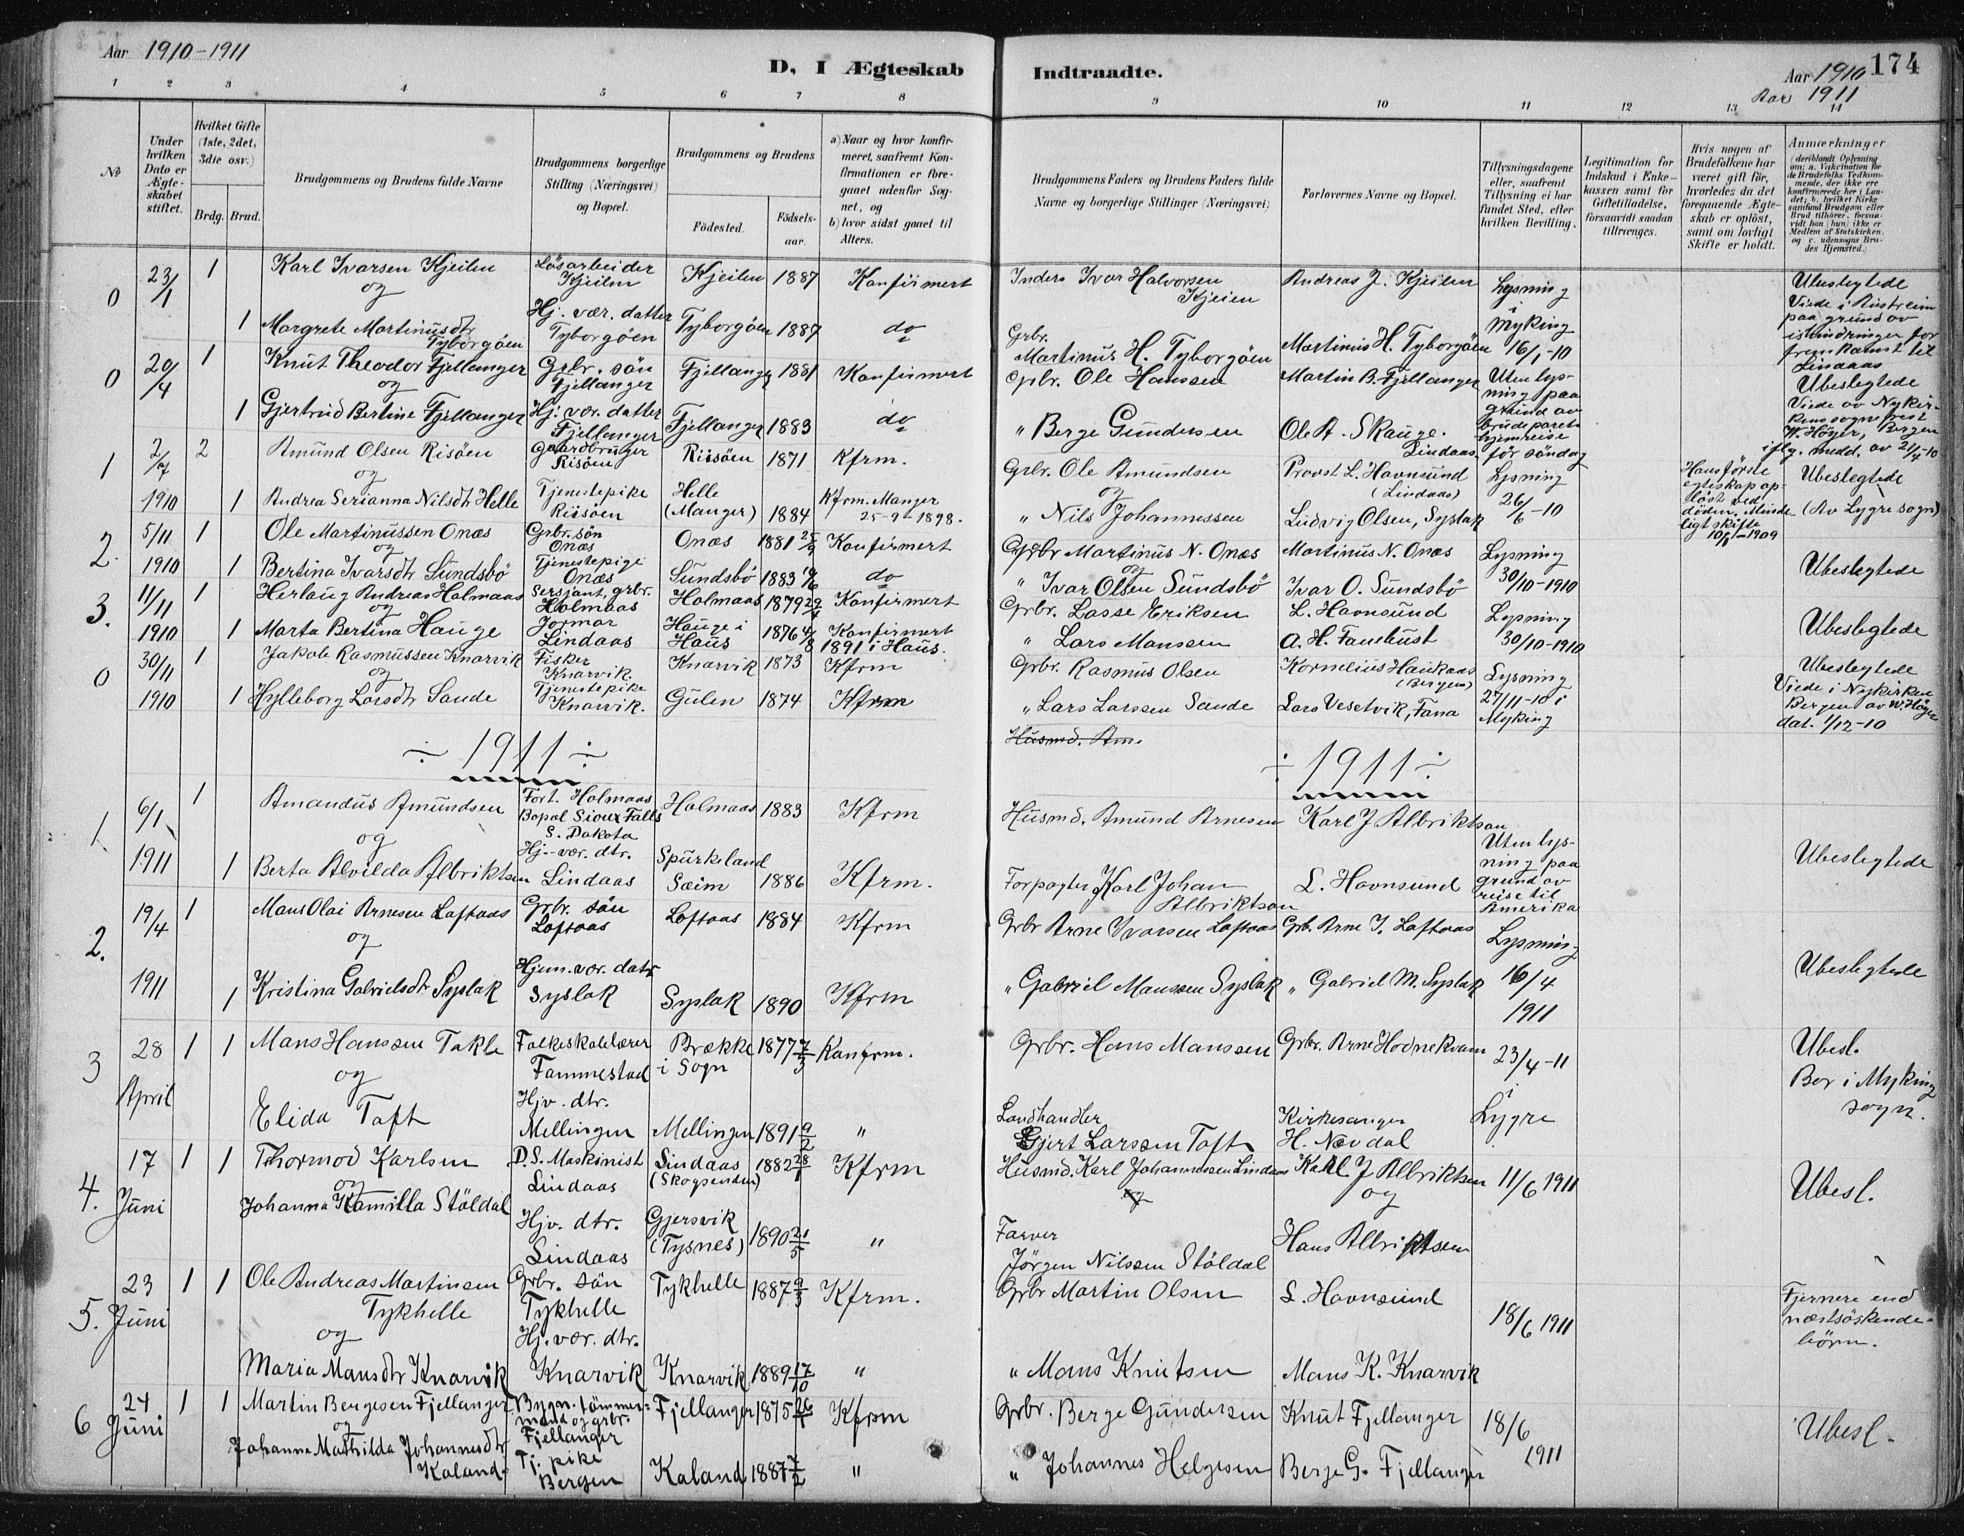 Aar 1910-1911
D, I Ægteskab Indtraadte.
Aar 1910 174
Aar 1911
1 2 3 4 5 6 7 8 9 10 11 12 13 14
No
Under hvilken Dato er Ægteskabet stiftet.
Hvilket Gifte (1ste, 2det, 3die osv.)
Brdg. Brud.
Brudgommens og Brudens fulde Navne
Brudgommens borgerlige Stilling (Næringsvei) og Bopæl.
Brudgommens og Brudens
Fødested. Fødselsaar.
a) Naar og hvor konfirmeret, saafremt Konfirmationen er foregaaet udenfor Sognet, og
b) hvor sidst gaaet til Alters.
Brudgommens Faders og Brudens Faders fulde Navne og borgerlige Stillinger (Næringsvei)
Forlovernes Navne og Bopæl.
Tillysningsdagene eller, saafremt Tillysning ei har fundet Sted, efter hvilken Bevilling.
Legitimation for Indskud i Enkekassen samt for Giftetilladelse, forsaavidt saadan tiltrænges.
Hvis nogen af Brudefolkene har været gift før, hvorledes da det foregaaende Ægteskab er opløst, samt om lovligt Skifte er holdt.
Anmærkninger (deriblandt Oplysning om: a. Vakcination for de Brudefolks Vedkommende, der ikke ere konfirmerede her i Landet; b. hvilket Kirkesamfund Brudgom eller Brud tilhører, forsaavidt han (hun) ikke er Medlem af Statskirken, og c. udensogns Brudes Hjemsted.)
0 23/1 1 Karl Ivarsen Kjeilen Løsarbeider Kjeilen Kjeilen 1887 Konfirmert Inders Ivar Halvorsen Kjeien Andreas J. Kjeilen Lysning i Myking 16/1-10 Ubeslegtede
og
1 Margrete Martinusdtr Tyborgøen Hj. vær. datter Tyborgøen Tyborgøen 1887 do Grbr. Martinus H. Tyborgøen Martinus H. Tyborgøen Viede i Austreim paa grund av ishindringer for fremkomst til Lindaas
0 20/4 1 Knut Theodor Fjellanger Grbr. søn Fjellanger Fjellanger 1881 Konfirmert Grbr. Ole Hanssen Martin B. Fjellanger Uten lysning paa grund av Brudeparets hjemreise før søndag Ubeslegtede
og
1 Gjertrud Bertine Fjellanger Hj. vær. datter Fjellanger Fjellanger 1883 do " Berge Gundersen Ole A. Skauge. Lindaas Viede av Nykirkens sogneprest W. Höyer, Bergen iflg. medd. av 21/4-10
1 2/7 2 Amund Olsen Risøen Gaardbruger Risøen Riisøen 1871 Kfrm. Grbr. Ole Amundsen Provst L. Havnsund (Lindaas) Lysning 26/6-10 Hans første egteskap opløst ved døden, Mindeligt skifte 10/6-1909 Ubeslegtede
og og
1910 1 Andrea Serianna Nilsdtr Helle Tjenestepike Riisøen Helle (Manger) 1884 Kfrm. Manger 25-9-1898. " Nils Johannessen Ludvig Olsen, Syslak (Av Lygre sogn)
2. 5/11 1 Ole Martinussen Onæs Grbr. søn Onæs Onæs 1881 Konfirmert Grbr Martinus N. Onæs Martinus N. Onæs Lysning 30/10-1910 Ubeslegtede
og og
1910 1 Bertina Ivarsdtr Sundsbö Tjenestepige Onæs Sundsbö 1883 do " Ivar Olsen Sundsbö Ivar O. Sundsbö
3. 11/11 1 Herlaug Andreas Holmaas Sersjant, grbr. Holmaas Holmaas 1879 Konfirmert Grbr. Lasse Eriksen L. Havnsund Lysning 30/10-1910 Ubeslegtede
og
1910 1 Marta Bertina Hauge Jormor Lindaas Hauge i Haus 1876 4/8 Konfirmert 1891 i Haus. " Lars Monsen A. H. Fanebust
0 30/11 1 Jakob Rasmussen Knarvik Fisker Knarvik Knarvik 1873 Kfrm Grbr. Rasmus Olsen Kornelius Haukaas (Bergen) Lysning 27/11-10 i Myking Ubeslegtede
og
1910 1 Hylleborg Larsdtr Sande Tjenestepike Knarvik. Gulen 1874 Kfrm " Lars Larssen Sande Lars Vesetvik, Fana Viede i Nykirken Bergen av W. Höyer dat. 1/12-10
Husmd. Am.
÷ 1911 ÷ ÷ 1911 ÷
1. 6/1 1 Amandus Amundsen Fort. Holmaas Bopæl Sioux Falls S. Dakota Holmaas 1883 Kfrm Husmd. Amund Arnesen Karl J Albriktsen Uten lysning paa grund av reise til Amerika Ubeslegtede
og
1911 1 Berta Alvilda Albriktsen Hj.-vær. dtr. Lindaas Spurkeland Sæim 1886 Kfrm. Forpagter Karl Johan Albriktson L. Havnsund
2. 19/4 1 Mons Olai Arnesen Loftaas Grbr. søn Loftaas Loftaas 1884 Kfrm Grbr Arne Ivarsen Loftaas Grb. Arne I. Loftaas Lysning 16/4 1911 Ubeslegtede
og
1911 1 Kristina Gabrielsdtr Syslak Hjem. vær. datr Syslak Syslak 1890 Kfrm " Gabriel Monssen Syslak " Gabriel M. Syslak
3 28 April 1 1 Mons Hanssen Takle Folkeskolelærer Fammestad Brække i Sogn 1877 7/3 Konfrm. Grbr. Hans Monssen Grbr. Arne Hodnekvam 23/4-11 i Lygre Ubesl. Bor i Myking sogn.
og
Elida Toft Hjv. dtr. Mellingen Mellingen 1891 9/2 " Landhandler Gjert Larssen Toft Kirkesanger H. Nævdal
4. 17 Juni 1 1 Thormod Karlsen D.S. Maskinist Lindaas Lindaas (Skogsenden) 1882 28/1 Kfrm Husmd. Karl Johannessen Lindaas Karl J Albriktsen 11/6 1911 Ubesl.
og og og
Johanna Kamilla Stöldal Hjv. dtr. Lindaas Gjersvik (Tysnes) 1890 21/5 " Farver Jörgen Nilssen Stöldal Hans Albriktsen
5. 23 Juni 1 1 Ole Andreas Martinsen Tykhelle Grbr. søn Tykhelle Tykhelle 1887 9/3 Kfrm. Grbr Martin Olsen L. Havnsund 18/6 1911 Fjernere end næstsöskendebörn.
og
Maria Monsdtr Knarvik Hj. vær. dtr. Knarvik Knarvik 1889 17/10 " " Mons Knutsen Mons K. Knarvik
6 24 Juni 1 1 Martin Bergesen Fjellanger Bygn. tömmermand og grbr. Fjellanger Fjellanger 1875 Kfrm Grbr. Berge Gundersen Knut Fjellanger 18/6 1911 Ubesl.
og
Johanna Mathilda Johannesdtr Kaland Tj. pike Bergen Kaland 1887 7/2 " " Johannes Helgesen Berge G. Fjellanger